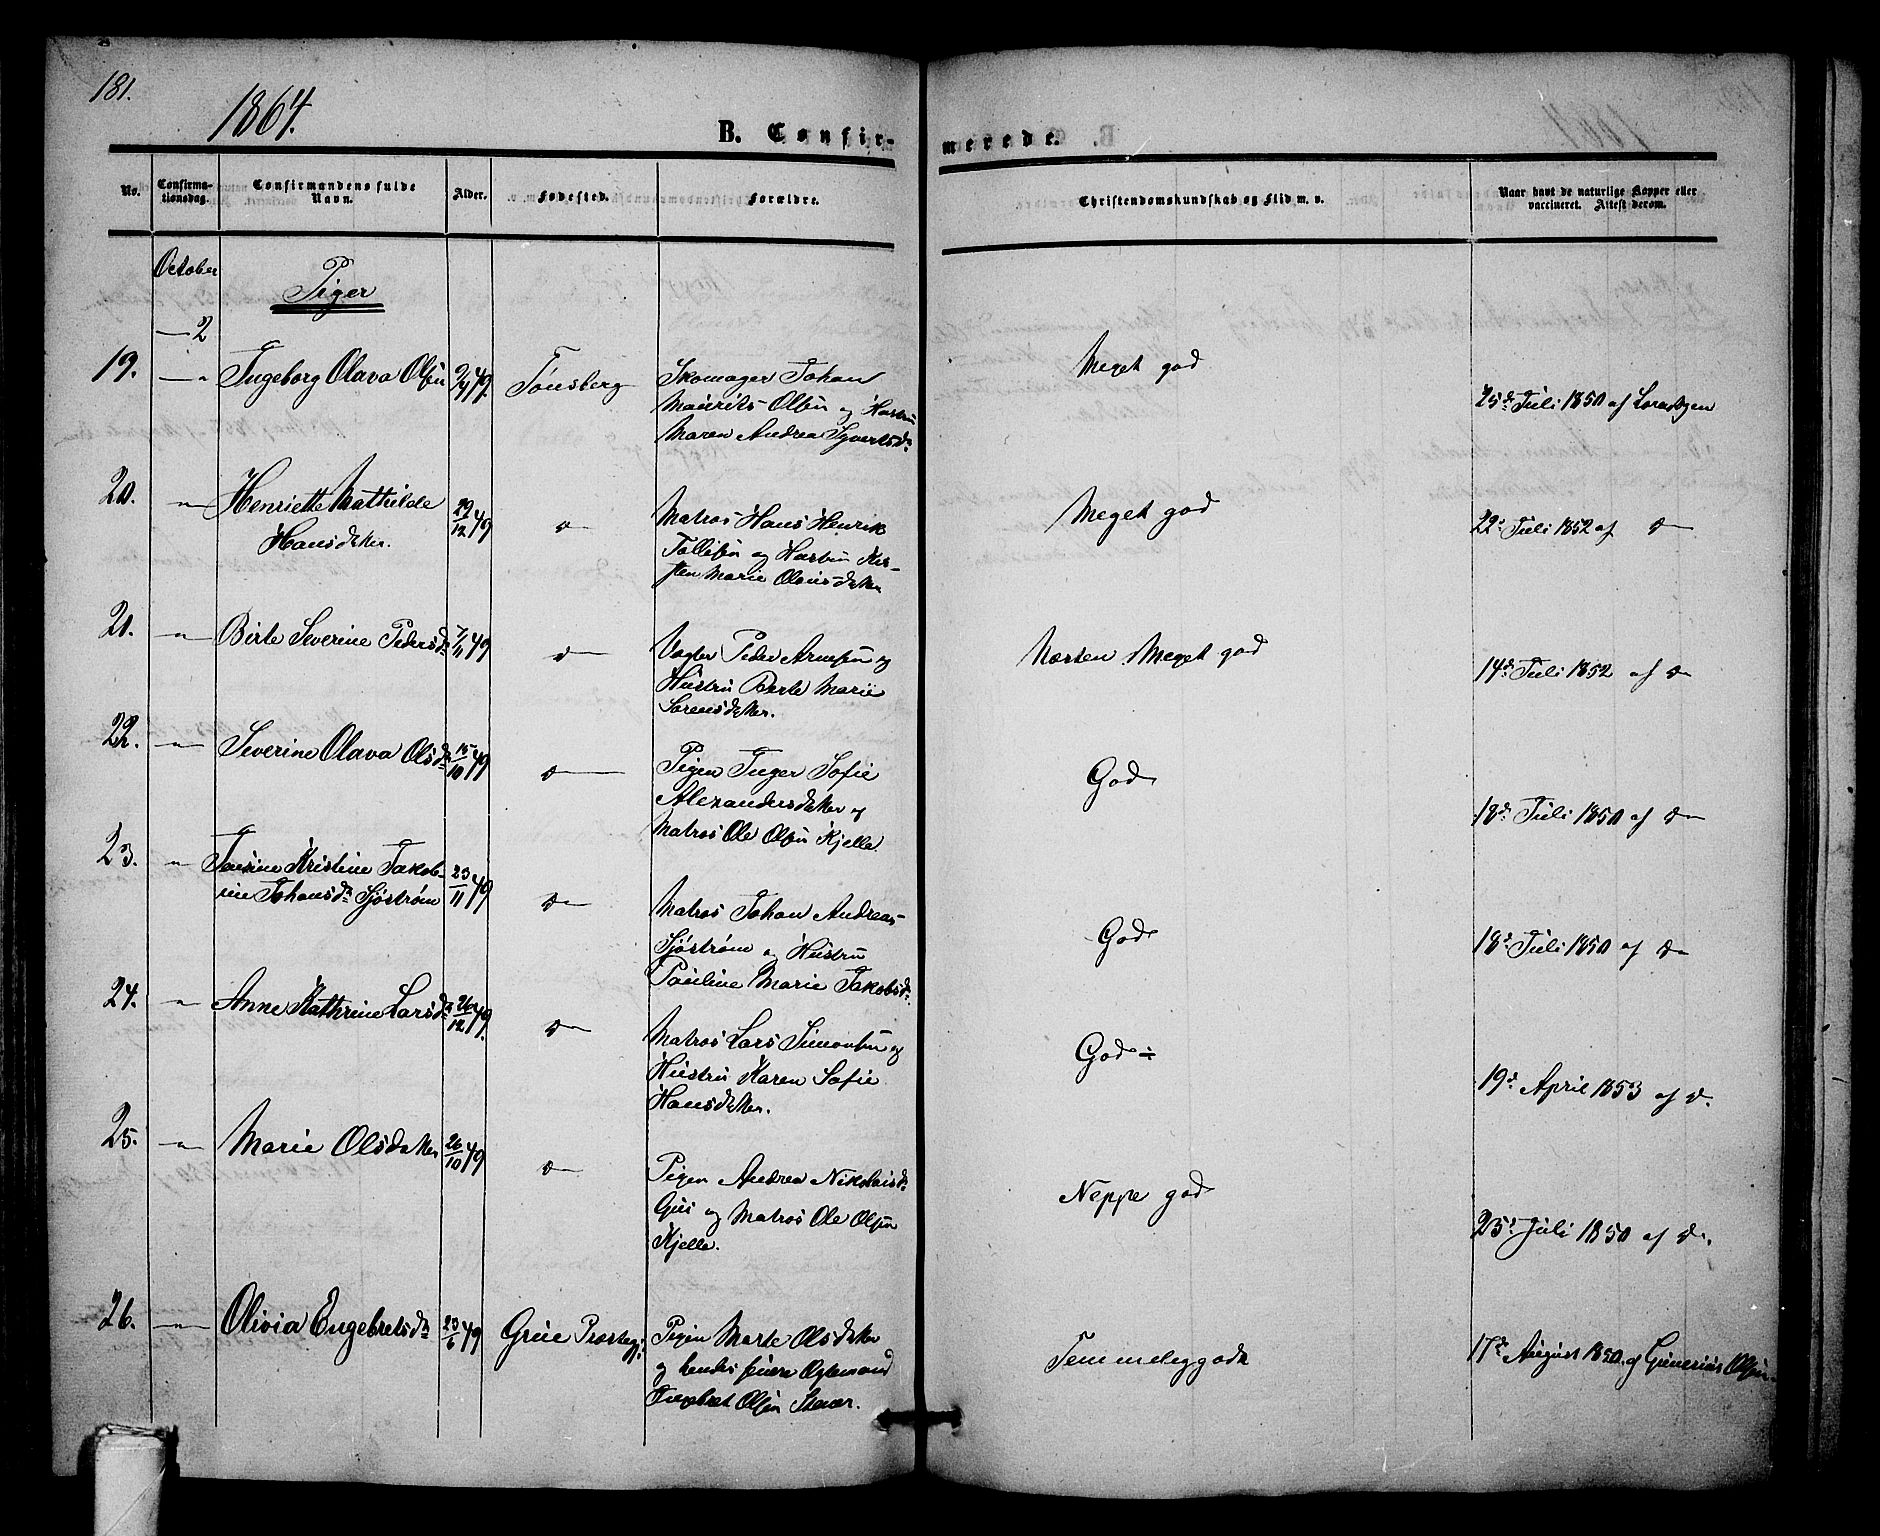 181.
1864.
B. Confir-
merede.
No.
Confirma-
tionsdag.
Confirmandens fulde
Navn.
Alder.
Fødested.
Forældre.
Christendomskundskab og Flid m. v.
Naar havt de naturlige Kopper eller
vaccineret. Attest derom.
October
Piger
— 2
19. — " Ingeborg Olava Olsen 2/4 49. Tønsberg Skomager Johan
Maurits Olsen og Hustru
Maren Andrea Syvertsd.
Meget god
25d Juli 1850 af
20. — " — Henriette Mathilde
Hansdatter. 29/12 49 D— Matros Hans Henrik
Tollefsen og Hustru Kir-
sten Marie Olausdatter
Meget god
22d Juli 1852 af D—
21. — " — Birte Severine Pedersd. 7/11 49 D— Vægter Peder Arnesen og
Hustru Berte Marie
Sørensdatter.
Næsten Meget god
14d Juli 1852 af D—
22. — " — Severine Olava Olsd. 15/10 49 D— Pigen Inger Sofie
Alexandersdatter og
Matros Ole Olsen Kjelle.
God
18d Juli 1850 af D—
23. — " — Kristine Jakob-
ine Johansd. Sjøstrøm 23/11 49 D— Matros Johan Andreas
Sjøstrøm og Hustru
Pauline Marie Jakobsd.
God
18d Juli 1850 af D—
24. — " — Anne Kathrine Larsd. 26/12 49. D— Matros Lars Simonsen og
Hustru Karen Sofie
Hansdatter.
God ÷
19d April 1853 af D.
25. — " — Marie Olsdatter 26/10 49 D— Pigen Andrea Nikolaisd.
og Matros Ole Olsen
Kjelle.
Neppe god
25d Juli 1850 af D.
26. — " — Olivia Engebretsd. 23/6 49 Grue Præstegj: Pigen Marte Olsdatter
og hendes
Engebret Olsen
Temmelig godt
17d August 1850 af Gunerius Olsen.